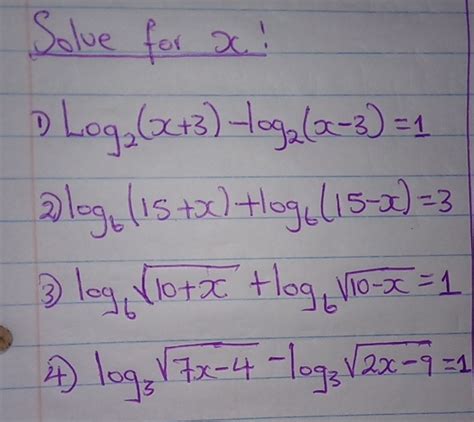 Solve for x!
1) Log₂(x+3) - log₂(x-3) = 1
2) log₆(15+x) + log₆(15-x) = 3
3) log₆√(10+x) + log₆√(10-x) = 1
4) log₃√(7x-4) - log₃√(2x-9) = 1